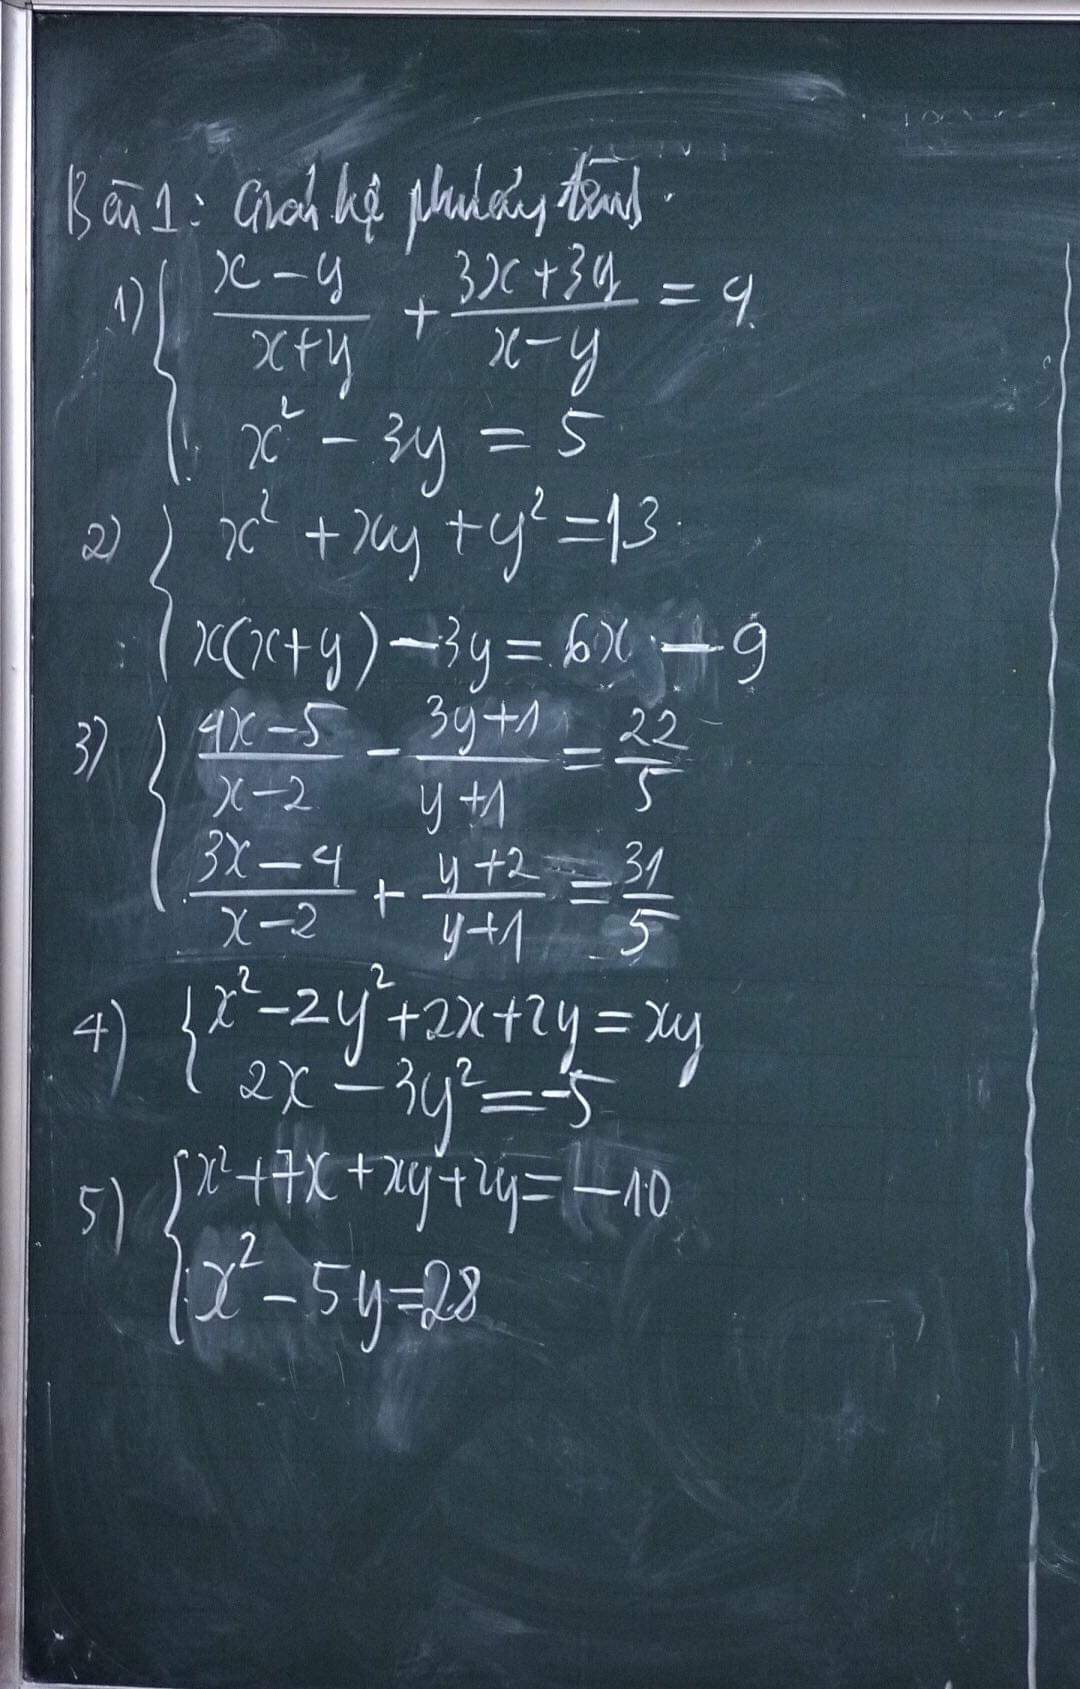 Bài 1: Giải hệ phương trình.
1) { (x - y)/(x + y) + (3x + 3y)/(x - y) = 4
x² - 3y = 5
2) { x² + xy + y² = 13
x(x + y) - 3y = 6x - 9
3) { (4x - 5)/(x - 2) - (3y + 1)/(y + 1) = 22/5
(3x - 4)/(x - 2) + (y + 2)/(y + 1) = 31/5
4) { x² - 2y² + 2x + 2y = xy
2x - 3y² = -5
5) { x² + 7x + xy + 2y = -10
x² - 5y = 28